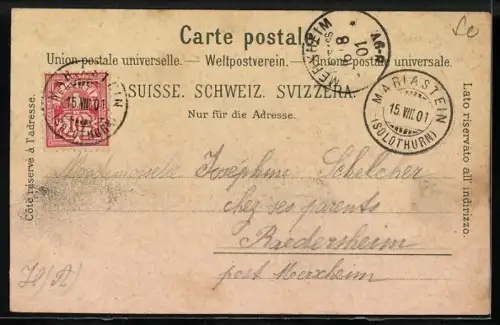 Carte postale.
Union postale universelle. — Weltpostverein. — Unione postale universale.
SUISSE. SCHWEIZ. SVIZZERA.
Nur für die Adresse.
Côté réservé à l'adresse.
Lato riservato all' indirizzo.
MARIASTEIN
15.VIII.01
(SOLOTHURN)
MARIASTEIN
15.VIII.01
(SOLOTHURN)
Mademoiselle Joséphine Schelcher
chez ses parents
Raedersheim
post Merxheim